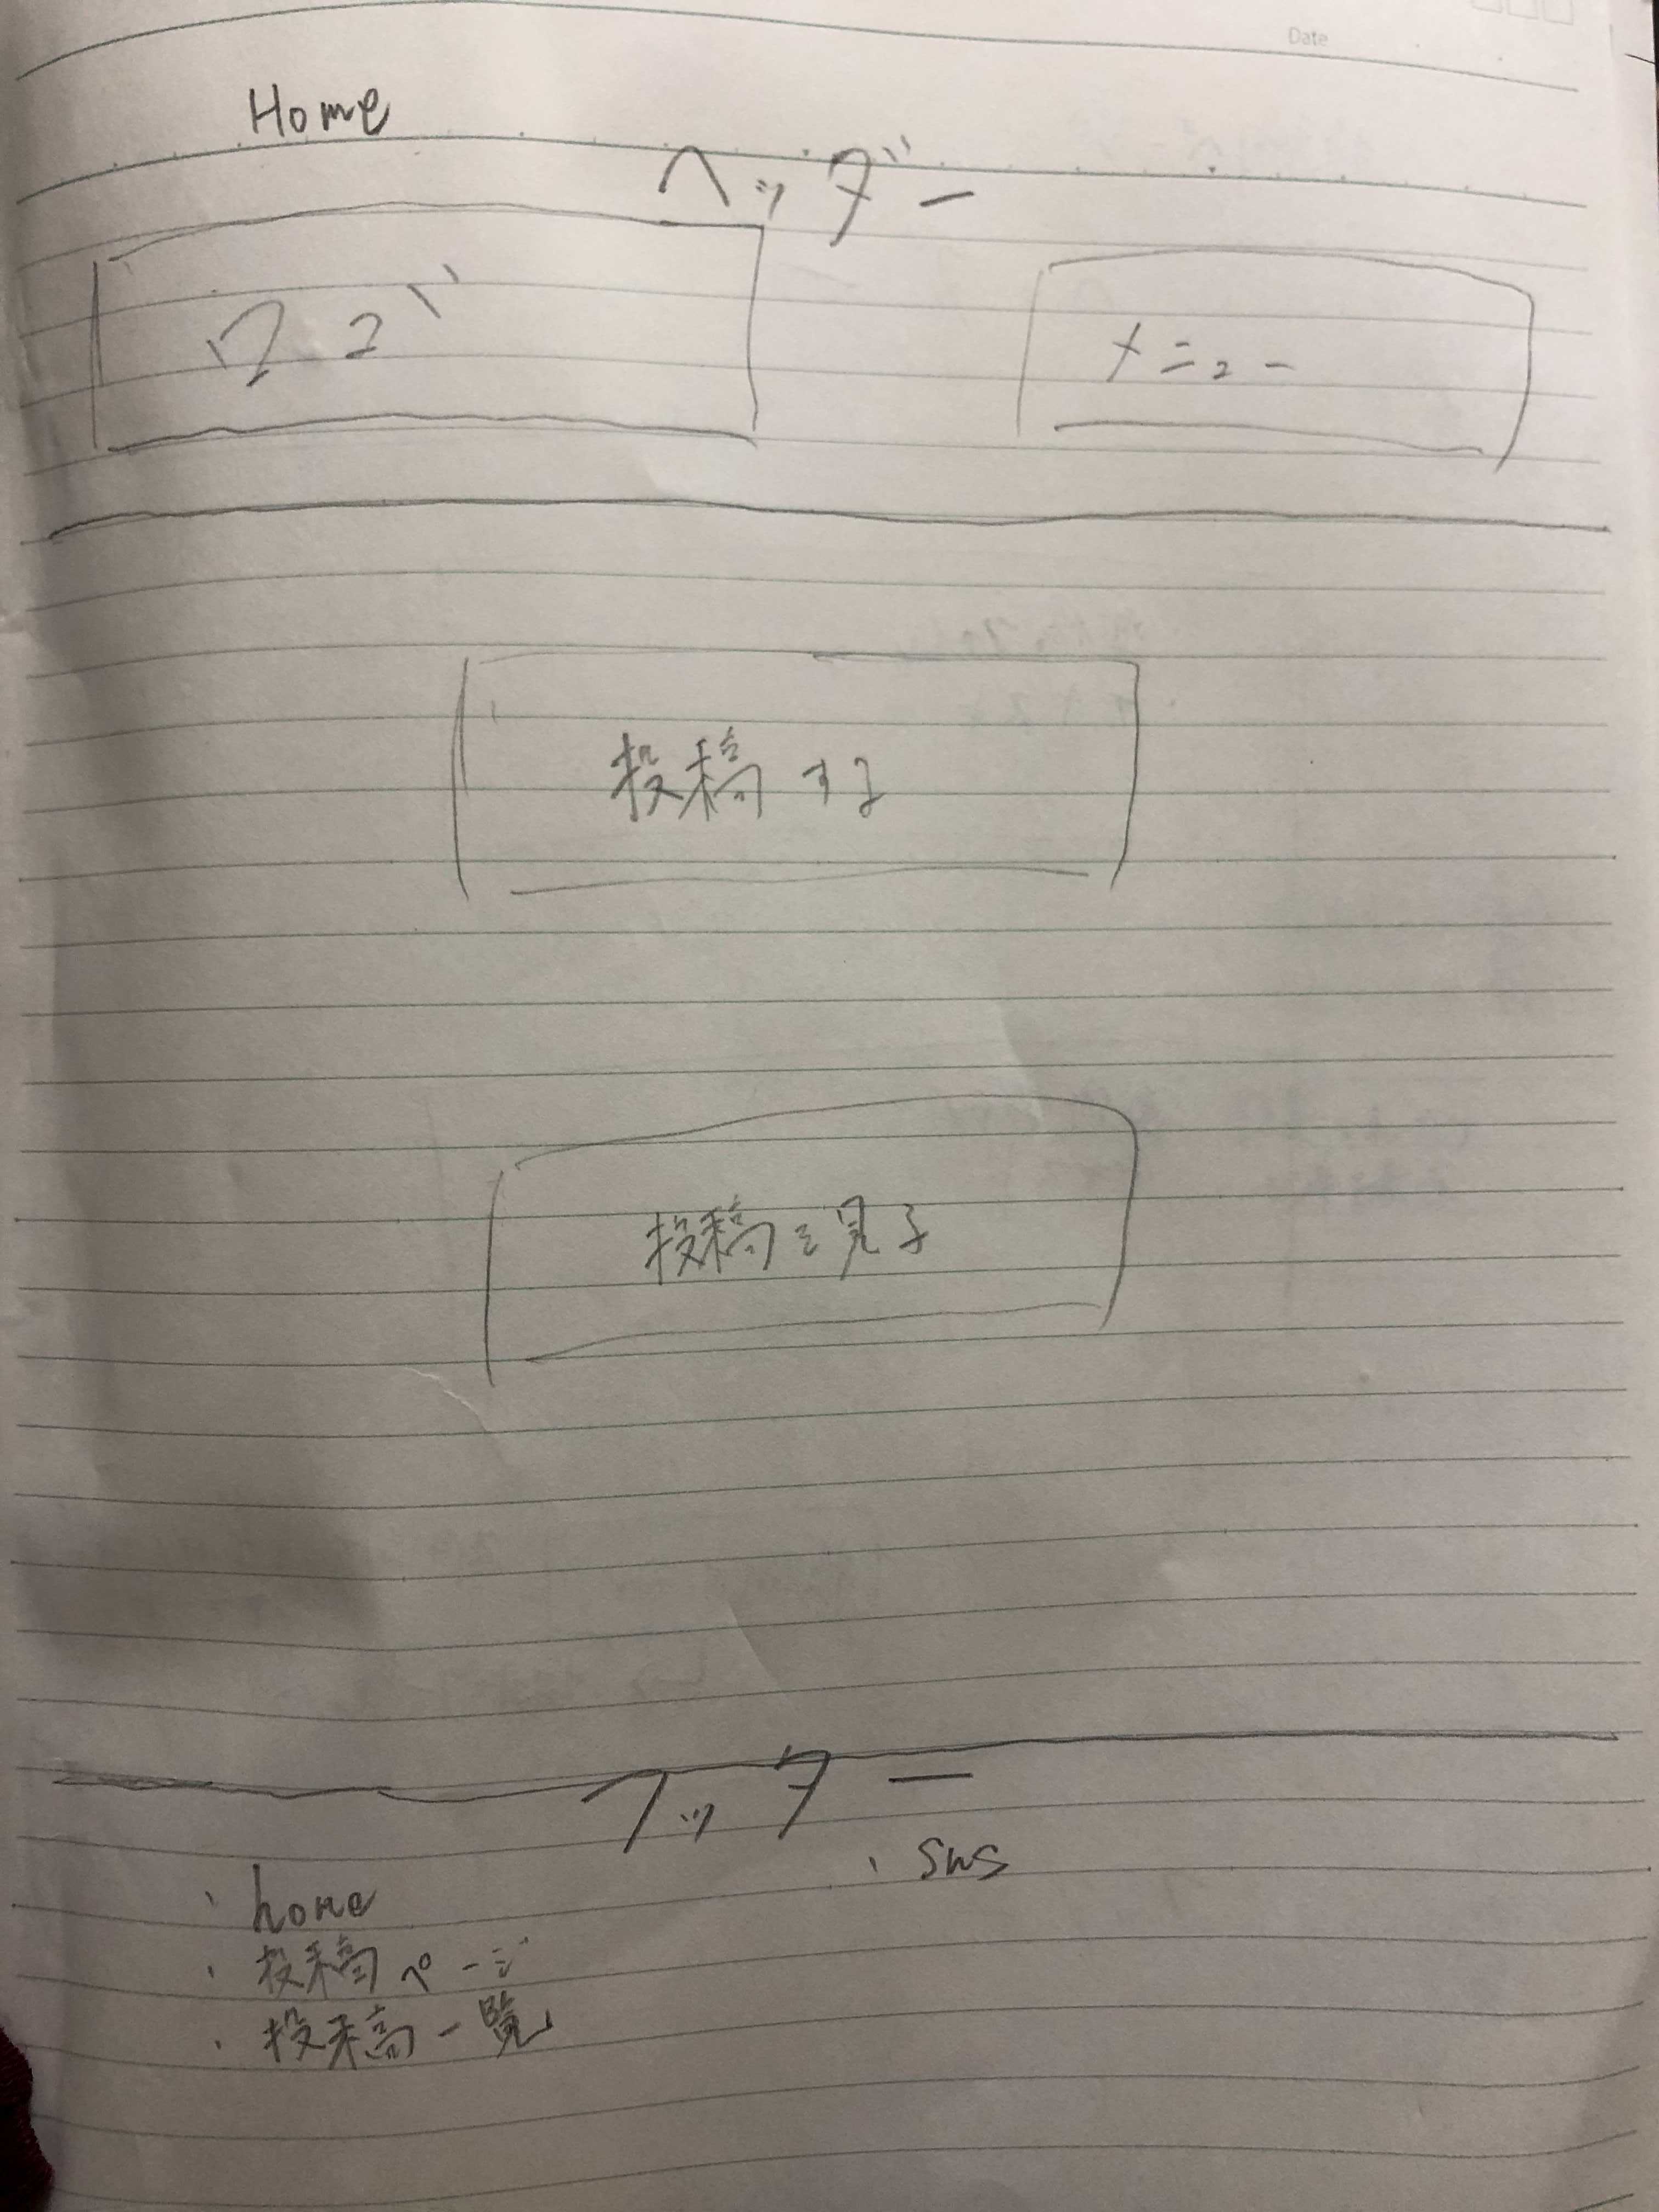 Date
Home
ヘッダー
メニュー
投稿する
投稿を見る
フッター
・home
・投稿ページ
・投稿一覧
・SNS